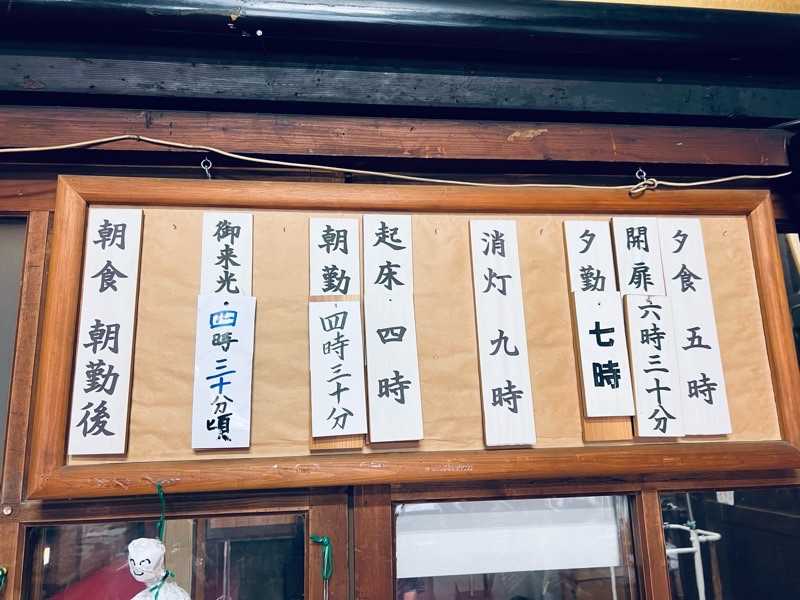 夕食 五時
開扉 六時三十分
夕勤 七時
消灯 九時
起床 四時
朝勤 四時三十分
御来光 四時三十分頃
朝食 朝勤後